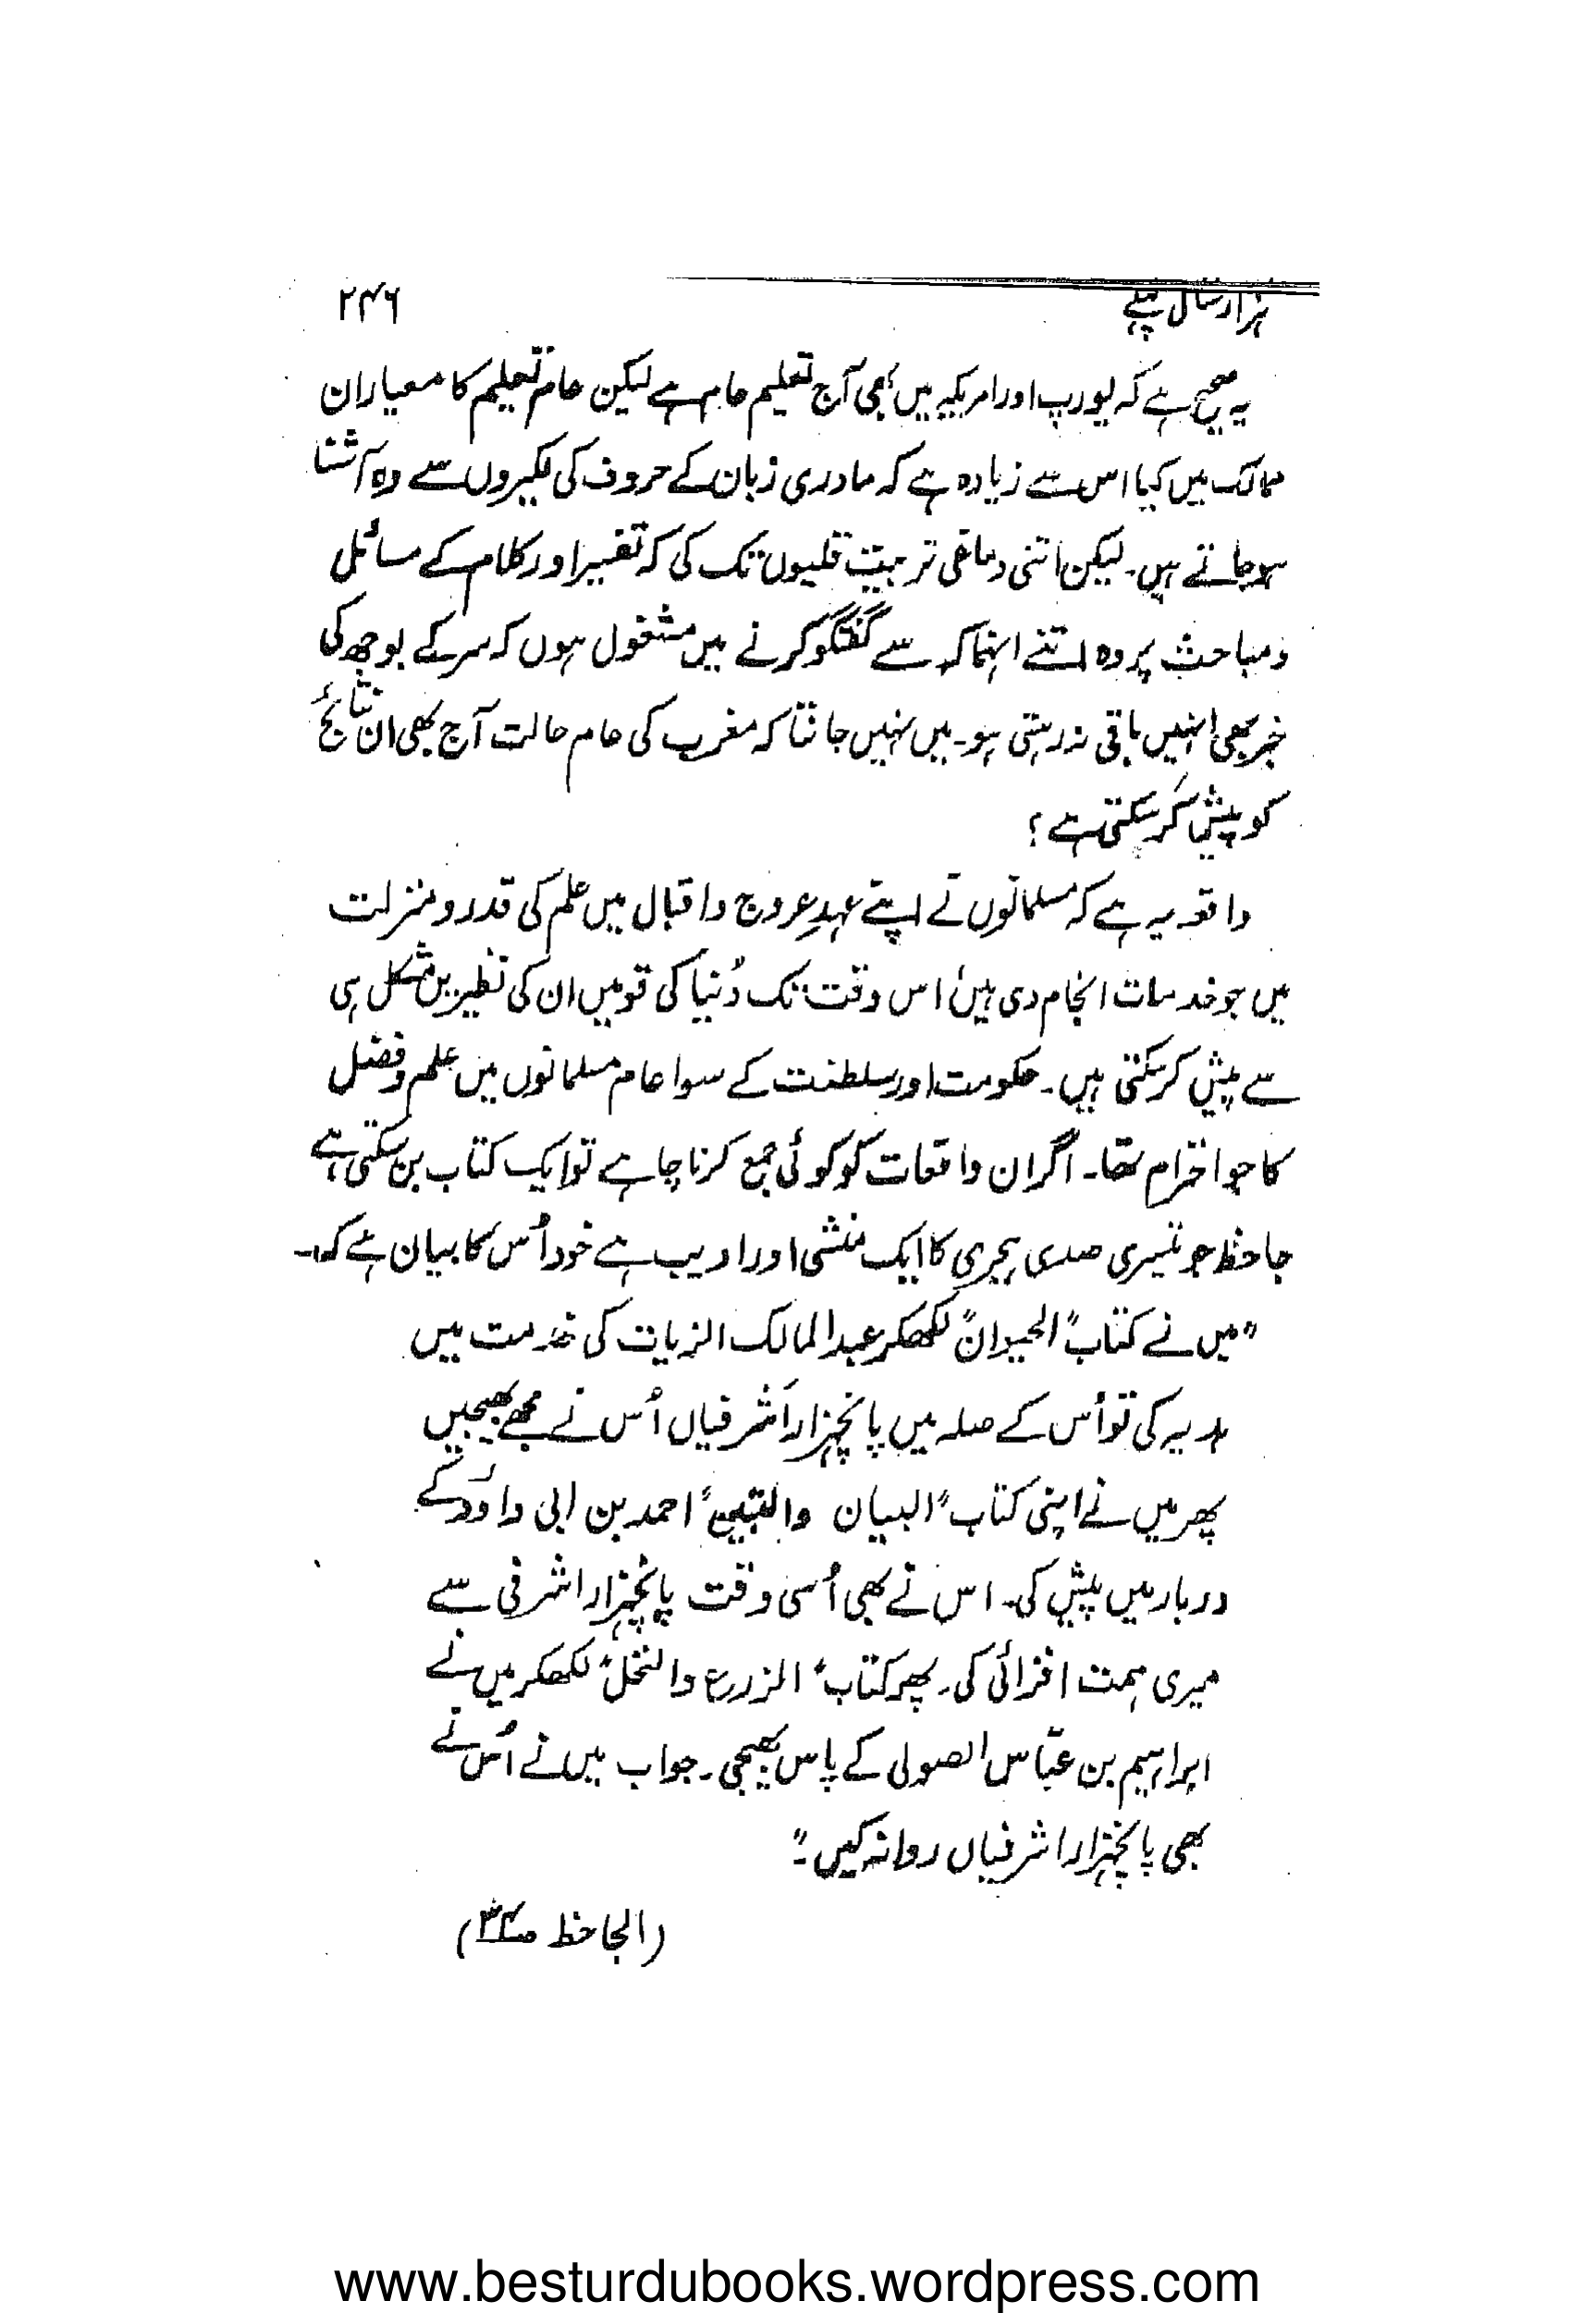 ہزار سال پہلے
۲۴۶
یہ صحیح ہے کہ یورپ اور امریکہ میں بھی آج تعلیم عام ہے لیکن عام تعلیم کا معیار ان
ممالک میں کیا اس سے زیادہ ہے کہ مادری زبان کے حروف کی لکیروں سے وہ آشنا
ہو جاتے ہیں۔ لیکن اتنی دماغی تربیت قلیوں تک کی کہ تفسیر اور کلام کے مسائل
و مباحث پر وہ اتنے انہماک سے گفتگو کرنے میں مشغول ہوں کہ سر کے بوجھ کی
خبر بھی انہیں باقی نہ رہتی ہو۔ میں نہیں جانتا کہ مغرب کی عام حالت آج بھی ان نتائج
کو پیش کر سکتی ہے ؟
واقعہ یہ ہے کہ مسلمانوں نے اپنے عہدِ عروج و اقبال میں علم کی قدر و منزلت
میں جو خدمات انجام دی ہیں اس وقت تک دُنیا کی قومیں ان کی نظیریں مشکل ہی
سے پیش کر سکتی ہیں۔ حکومت اور سلطنت کے سوا عام مسلمانوں میں علم و فضل
کا جو احترام تھا۔ اگر ان واقعات کو کوئی جمع کرنا چاہے تو ایک کتاب بن سکتی ہے
جاحظ جو تیسری صدی ہجری کا ایک منشی اور ادیب ہے خود اُس کا بیان ہے کہ:۔
"میں نے کتاب "الحیوان" لکھکر عبدالمالک الزیات کی خدمت میں
ہدیہ کی تو اُس کے صلہ میں پانچہزار اَشرفیاں اُس نے مجھے بھیجیں
پھر میں نے اپنی کتاب "البیان والتبیین" احمد بن ابی داؤد کے
دربار میں پیش کی۔ اس نے بھی اُسی وقت پانچہزار اشرفی سے
میری ہمت افزائی کی۔ پھر کتاب "الزرع والنخل" لکھکر میں نے
ابراہیم بن عبّاس الصولی کے پاس بھیجی۔ جواب میں اُس نے
بھی پانچہزار اشرفیاں روانہ کیں۔"
(الجاحظ
www.besturdubooks.wordpress.com